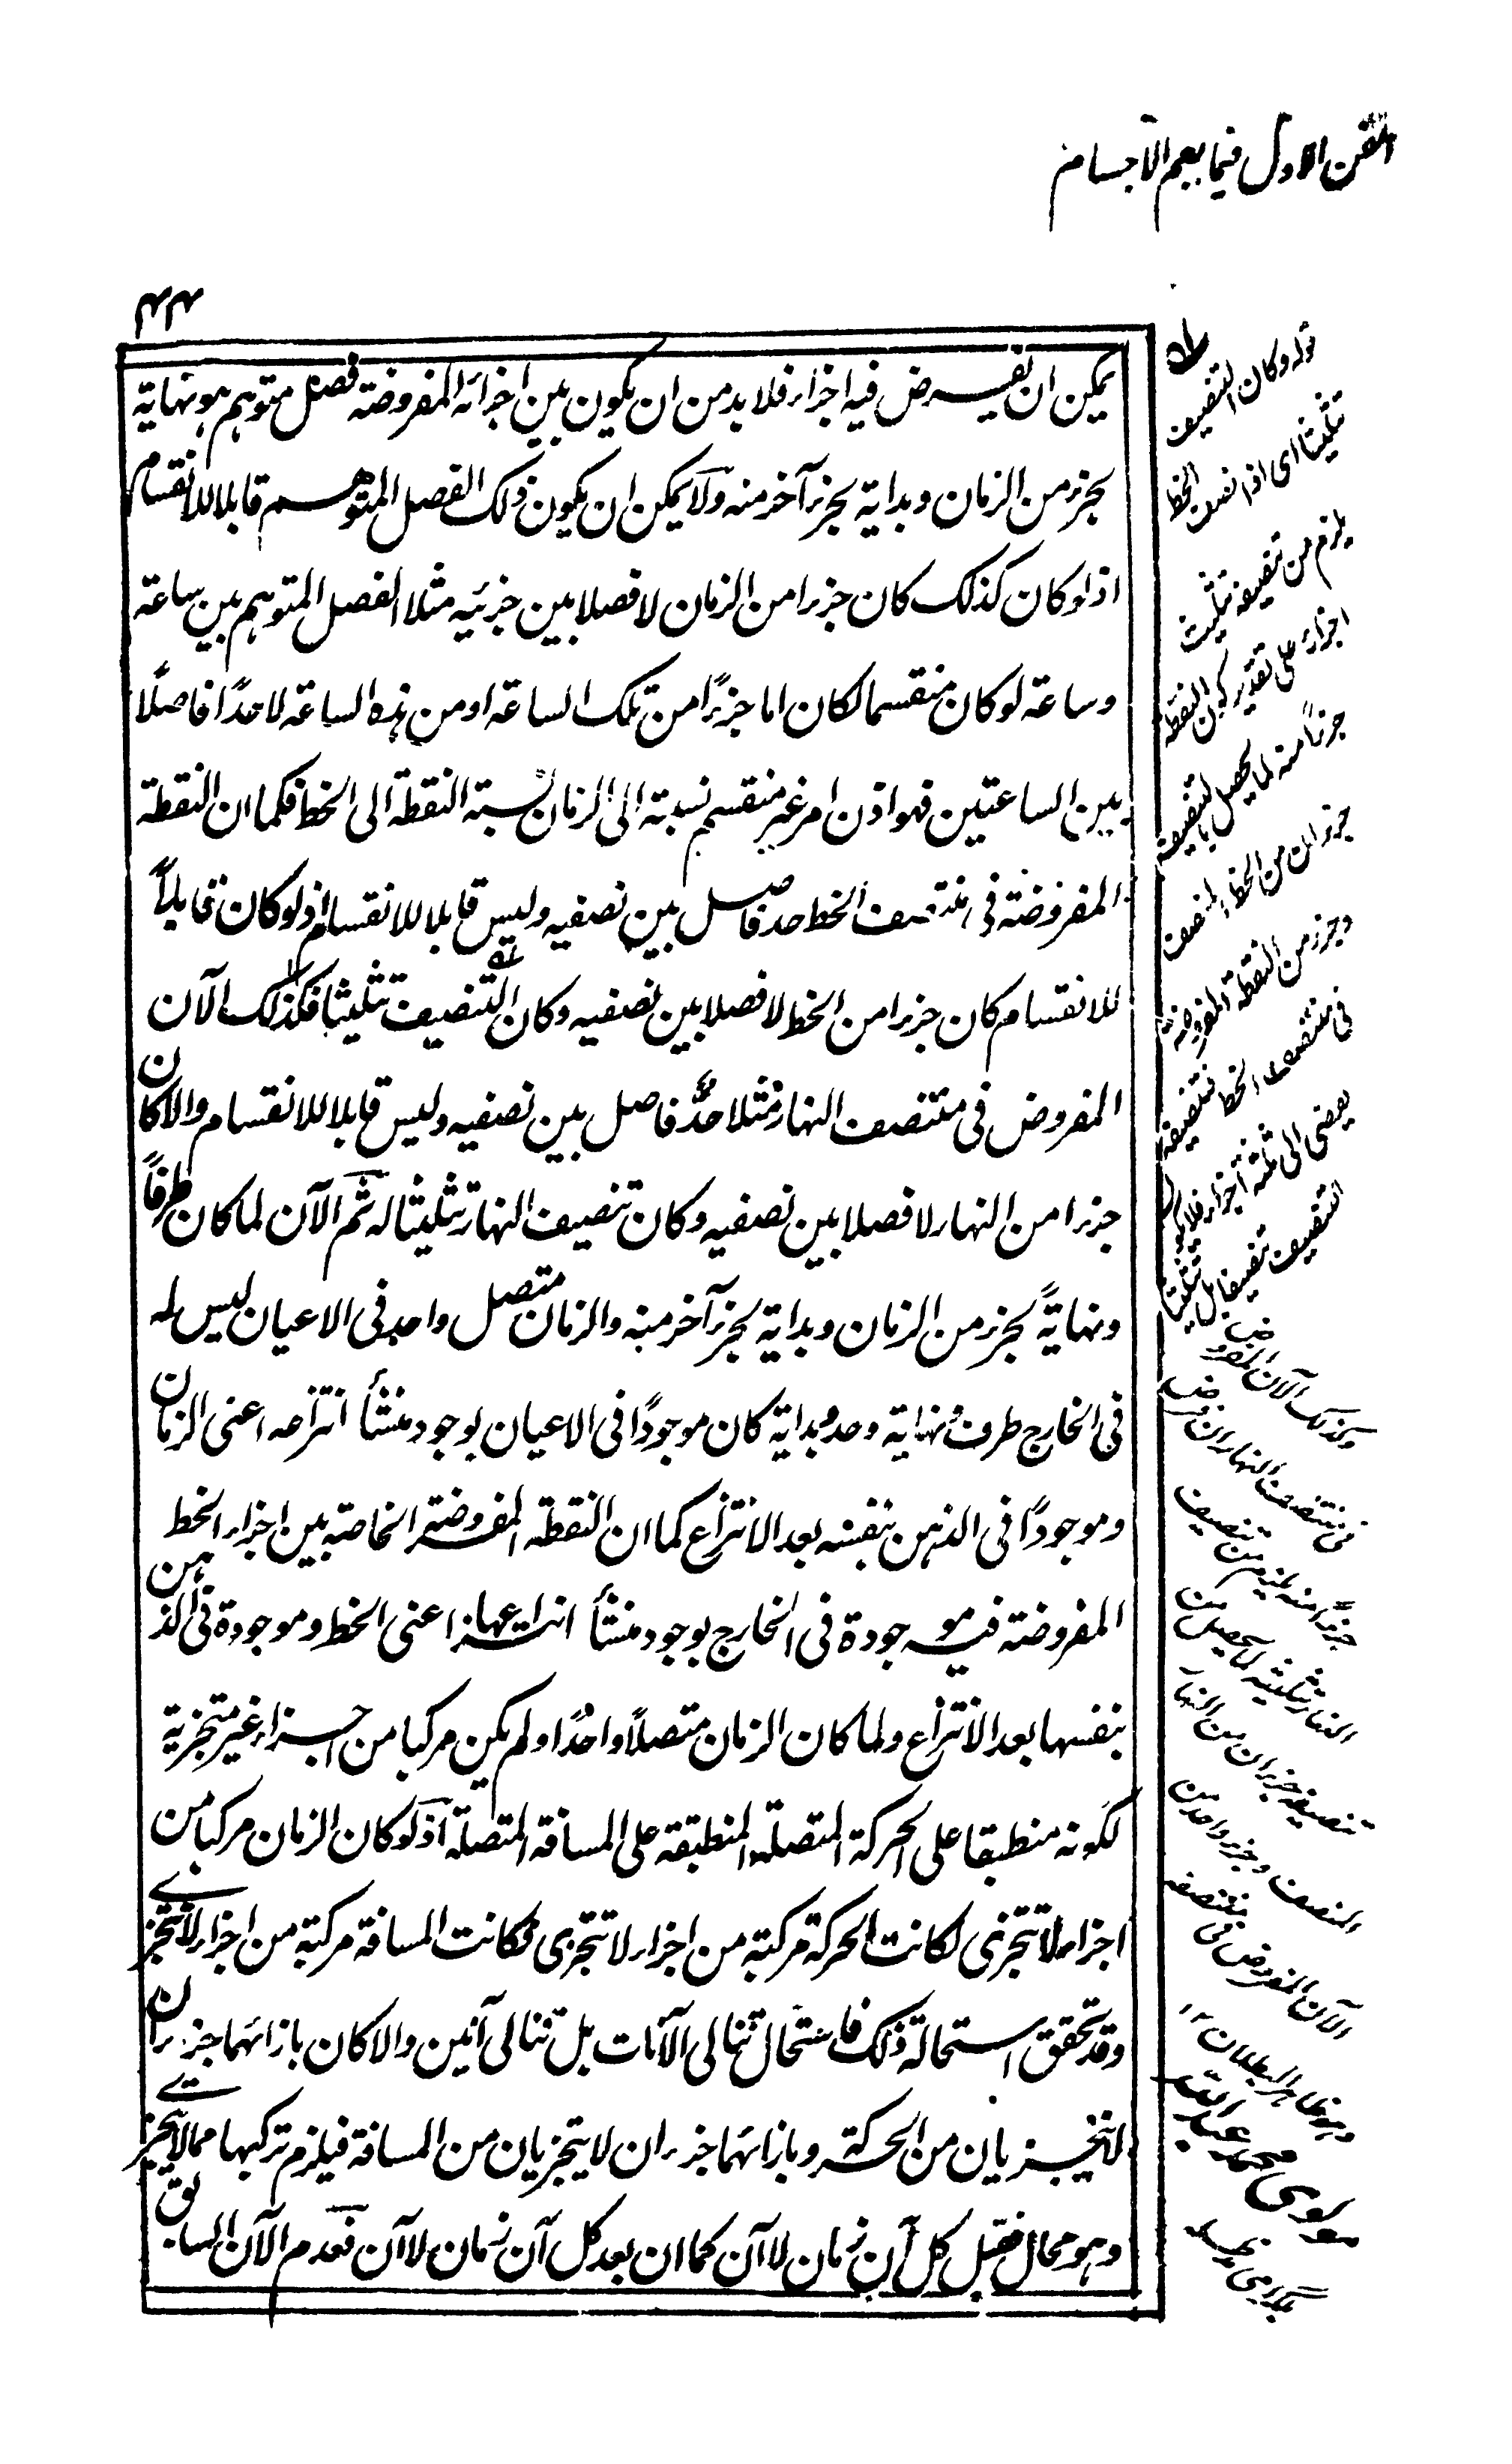 الفن الاول فيما يعم الاجسام
٤٤
يمكن ان يفرض فيه اجزاء فلا بد من ان يكون بين اجزائه المفروضة فصل متوهم هو نهاية
لجزء من الزمان وبداية لجزء آخر منه ولا يمكن ان يكون ذلك الفصل المتوهم قابلا للانقسام
اذ لو كان كذلك كان جزءا من الزمان لا فصلا بين جزئيه مثلا الفصل المتوهم بين ساعة
وساعة لو كان منقسما لكان اما جزءًا من تلك الساعة او من هذه الساعة لا حدًا فاصلًا
بين الساعتين فهو اذن امر غير منقسم نسبته الى الزمان نسبة النقطة الى الخط فكما ان النقطة
المفروضة فى منتصف الخط حد فاصل بين نصفيه وليس قابلا للانقسام اذ لو كان قابلاً
للانقسام كان جزءا من الخط لا فصلا بين نصفيه وكان التنصيف تثليثا فكذلك الآن
المفروض فى منتصف النهار مثلا حدٌّ فاصل بين نصفيه وليس قابلا للانقسام والا كان
جزءا من النهار لا فصلا بين نصفيه وكان تنصيف النهار تثليثا له ثم الآن لما كان طرفًا
ونهايةً لجزء من الزمان وبداية لجزء آخر منه والزمان متصل واحد فى الاعيان ليس له
فى الخارج طرف ونهاية وحد وبداية كان موجودًا فى الاعيان بوجود منشأ انتزاعه اعنى الزمان
وموجودًا فى الذهن بنفسه بعد الانتزاع كما ان النقطة المفروضة الخاصة بين اجزاء الخط
المفروضة فيه موجودة فى الخارج بوجود منشأ انتزاعها اعنى الخط وموجودة فى الذهن
بنفسها بعد الانتزاع ولما كان الزمان متصلاً واحدًا ولم يكن مركبا من اجزاء غير متجزية
لكونه منطبقا على الحركة المتصلة المنطبقة على المسافة المتصلة اذ لو كان الزمان مركبا من
اجزاء لا تتجزى لكانت الحركة مركبة من اجزاء لا تتجزى فكانت المسافة مركبة من اجزاء لا تتجزے
وقد تحقق استحالة ذلك فاستحال تتالى الآنات بل تتالى آنين والا كان بازائهما جزءان
لا يتجزيان من الحركة وبازائهما جزءان لا يتجزيان من المسافة فيلزم تركبها مما لا يتجزے
وهو محال فقبل كل آن زمان لا آن كما ان بعد كل آن زمان لا آن فعدم الآن السابق
قوله وكان التنصيف
تثليثا اى اذا نصف الخط
يلزم من تنصيفه تثليث
اجزاء على تقدير كون النقطة
جزءًا منه لما يحصل بالتنصيف
جزءان من الخط المنصف
وجزء من النقطة المفروضة
فى منتصف الخط فتنصيفه
يفضى الى ثلثة اجزاء فلا يكون
التنصيف تنصيفا بل تثليثا
وكذلك الآن المفروض
فى منتصف النهار ان فرض
جزءًا منه يلزم من تنصيف
النهار تثليثه لما يحصل من
تنصيفه جزءان من النهار
المنصف وجزء واحد من
الآن المفروض فى منتصفه
وهو ظاهر البطلان ١٢
مولوى محمد عبد الله
بلگرامى